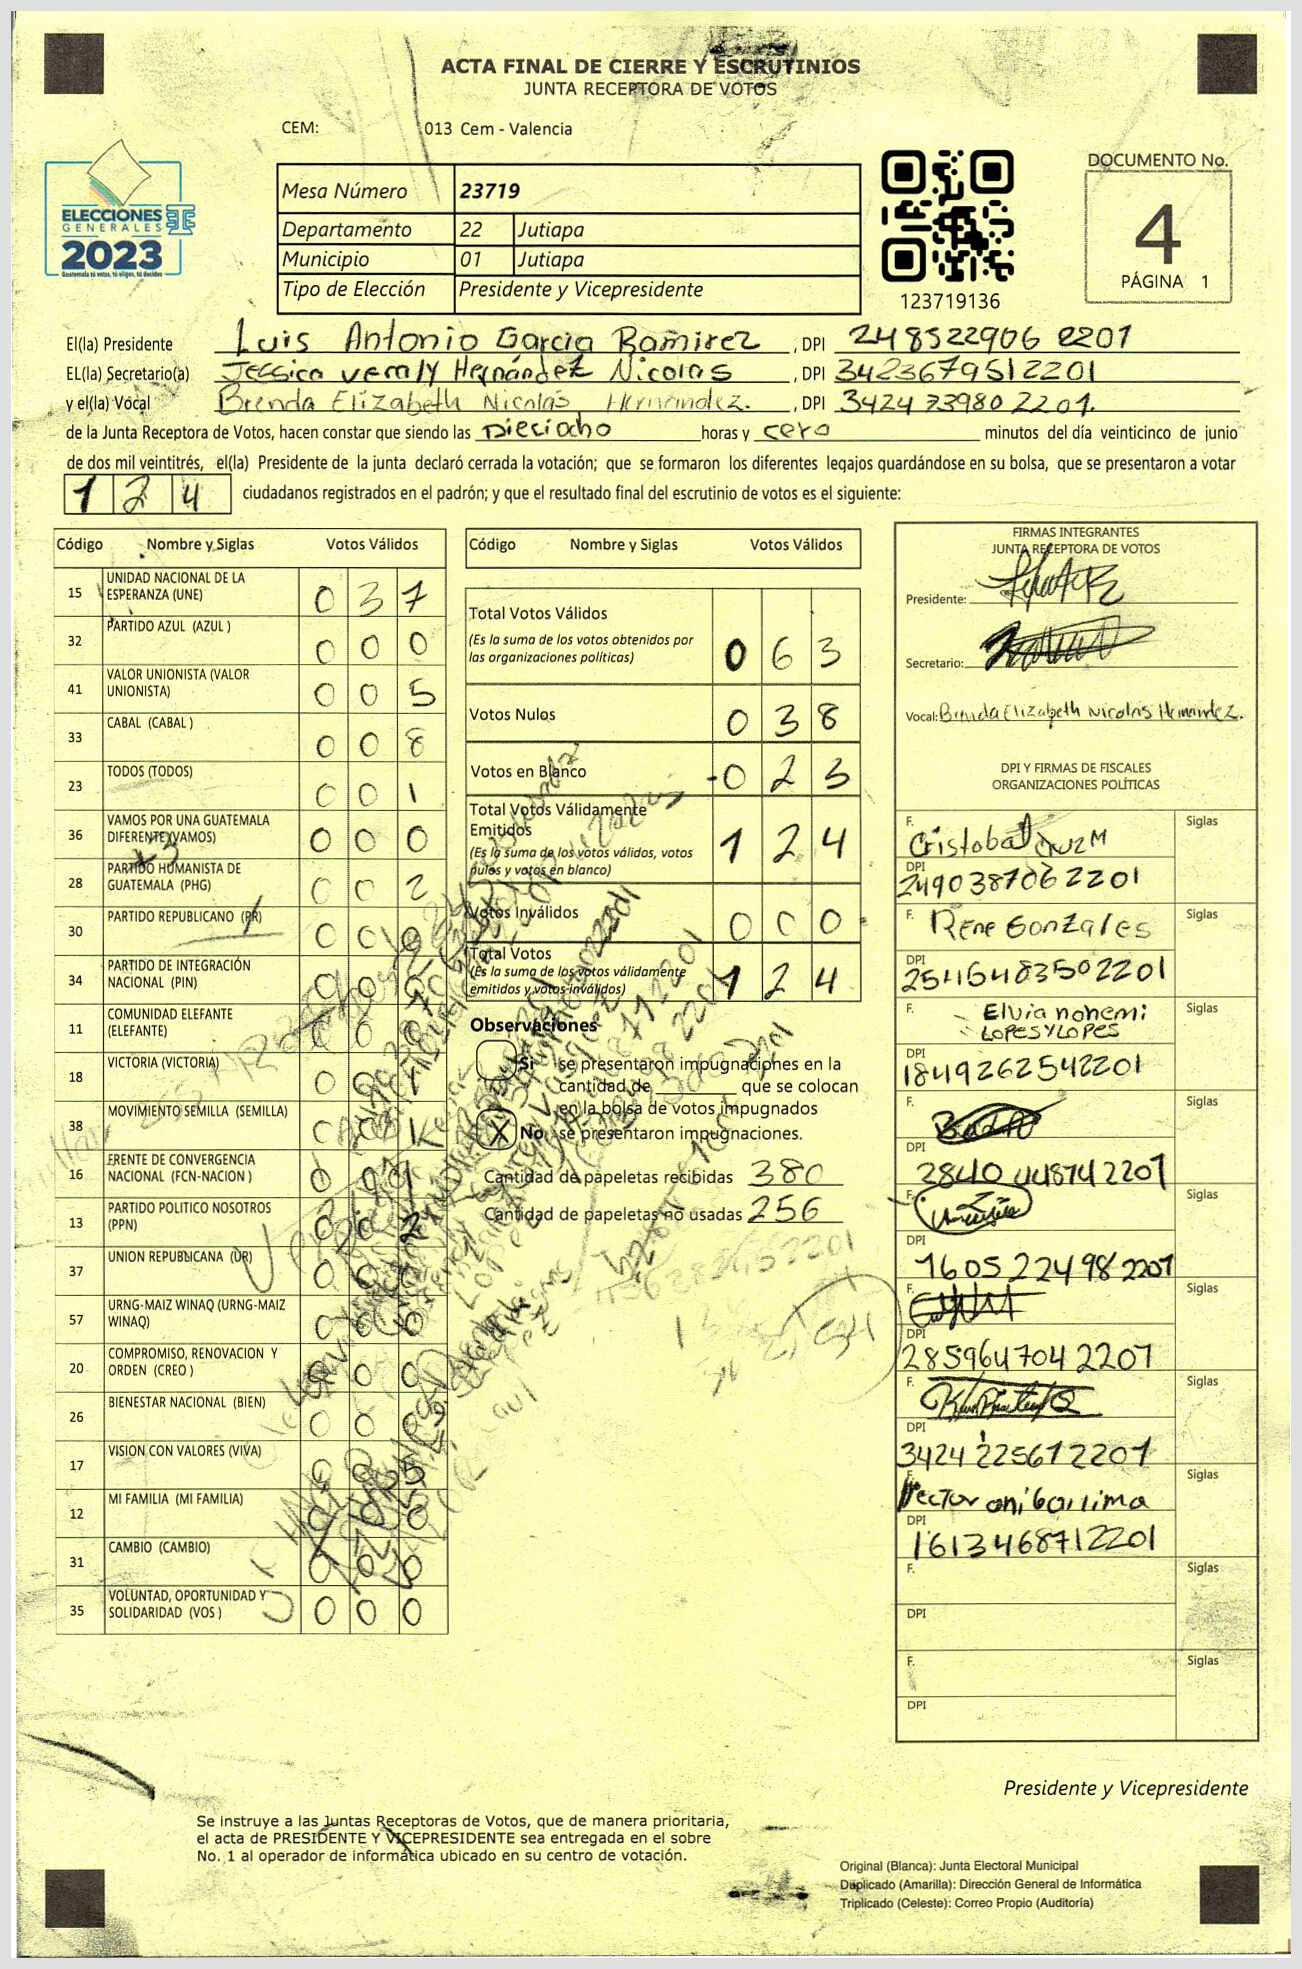 ACTA FINAL DE CIERRE Y ESCRUTINIOS
JUNTA RECEPTORA DE VOTOS
CEM: 013 Cem - Valencia
ELECCIONES
GENERALES
2023
Guatemala tú votas, tú eliges, tú decides
Mesa Número 23719
Departamento 22 Jutiapa
Municipio 01 Jutiapa
Tipo de Elección Presidente y Vicepresidente
123719136
DOCUMENTO No.
4
PÁGINA 1
El(la) Presidente Luis Antonio Garcia Ramirez, DPI 248522906 2201
EL(la) Secretario(a) Jessica Hernández Nicolas, DPI 3423679512201
y el(la) Vocal Brenda Elizabeth Nicolás Hernández., DPI 3424 73980 2201.
de la Junta Receptora de Votos, hacen constar que siendo las Dieciocho horas y cero minutos del día veinticinco de junio
de dos mil veintitrés, el(la) Presidente de la junta declaró cerrada la votación; que se formaron los diferentes legajos guardándose en su bolsa, que se presentaron a votar
1 2 4 ciudadanos registrados en el padrón; y que el resultado final del escrutinio de votos es el siguiente:
Código Nombre y Siglas Votos Válidos
15 UNIDAD NACIONAL DE LA
ESPERANZA (UNE) 0 3 7
32 PARTIDO AZUL (AZUL ) 0 0 0
41 VALOR UNIONISTA (VALOR
UNIONISTA) 0 0 5
33 CABAL (CABAL ) 0 0 8
23 TODOS (TODOS) 0 0 1
36 VAMOS POR UNA GUATEMALA
DIFERENTE (VAMOS) 0 0 0
28 PARTIDO HUMANISTA DE
GUATEMALA (PHG) 0 0 2
30 PARTIDO REPUBLICANO (PR) 0 0
34 PARTIDO DE INTEGRACIÓN
NACIONAL (PIN) 0 0 0
11 COMUNIDAD ELEFANTE
(ELEFANTE) 0 0 0
18 VICTORIA (VICTORIA) 0 0 1
38 MOVIMIENTO SEMILLA (SEMILLA) 0 0 1
16 FRENTE DE CONVERGENCIA
NACIONAL (FCN-NACION ) 0 0 1
13 PARTIDO POLITICO NOSOTROS
(PPN) 0 0 2
37 UNION REPUBLICANA (UR) 0 0 0
57 URNG-MAIZ WINAQ (URNG-MAIZ
WINAQ) 0 0 0
20 COMPROMISO, RENOVACION Y
ORDEN (CREO ) 0 0 0
26 BIENESTAR NACIONAL (BIEN) 0 0 0
17 VISION CON VALORES (VIVA) 0 0 5
12 MI FAMILIA (MI FAMILIA) 0 0 0
31 CAMBIO (CAMBIO) 0 0 0
35 VOLUNTAD, OPORTUNIDAD Y
SOLIDARIDAD (VOS ) 0 0 0
Código Nombre y Siglas Votos Válidos
Total Votos Válidos
(Es la suma de los votos obtenidos por
las organizaciones políticas) 0 6 3
Votos Nulos 0 3 8
Votos en Blanco 0 2 3
Total Votos Válidamente
Emitidos
(Es la suma de los votos válidos, votos
nulos y votos en blanco) 1 2 4
Votos Inválidos 0 0 0
Total Votos
(Es la suma de los votos válidamente
emitidos y votos inválidos) 1 2 4
Observaciones
Si se presentaron impugnaciones en la
cantidad de ________ que se colocan
en la bolsa de votos impugnados
X No se presentaron impugnaciones.
Cantidad de papeletas recibidas 380
Cantidad de papeletas no usadas 256
FIRMAS INTEGRANTES
JUNTA RECEPTORA DE VOTOS
Presidente:
Secretario:
Vocal: Brenda Elizabeth Nicolás Hernández.
DPI Y FIRMAS DE FISCALES
ORGANIZACIONES POLÍTICAS
F. Cristobal Cruz M Siglas
DPI 2490387062201
F. Rene Gonzales Siglas
DPI 2541648350 2201
F. Elvia nohemi Siglas
LOPES Y LOPES
DPI 1849262542201
F. Siglas
DPI 2840 448742201
F. Siglas
DPI 1605 22498 2201
F. Siglas
DPI 2859647042201
F. Siglas
DPI 3424 225612201
F. Hector anibal lima Siglas
DPI 1613468712201
F. Siglas
DPI
F. Siglas
DPI
Presidente y Vicepresidente
Se instruye a las Juntas Receptoras de Votos, que de manera prioritaria,
el acta de PRESIDENTE Y VICEPRESIDENTE sea entregada en el sobre
No. 1 al operador de informática ubicado en su centro de votación.
Original (Blanca): Junta Electoral Municipal
Duplicado (Amarilla): Dirección General de Informática
Triplicado (Celeste): Correo Propio (Auditoría)